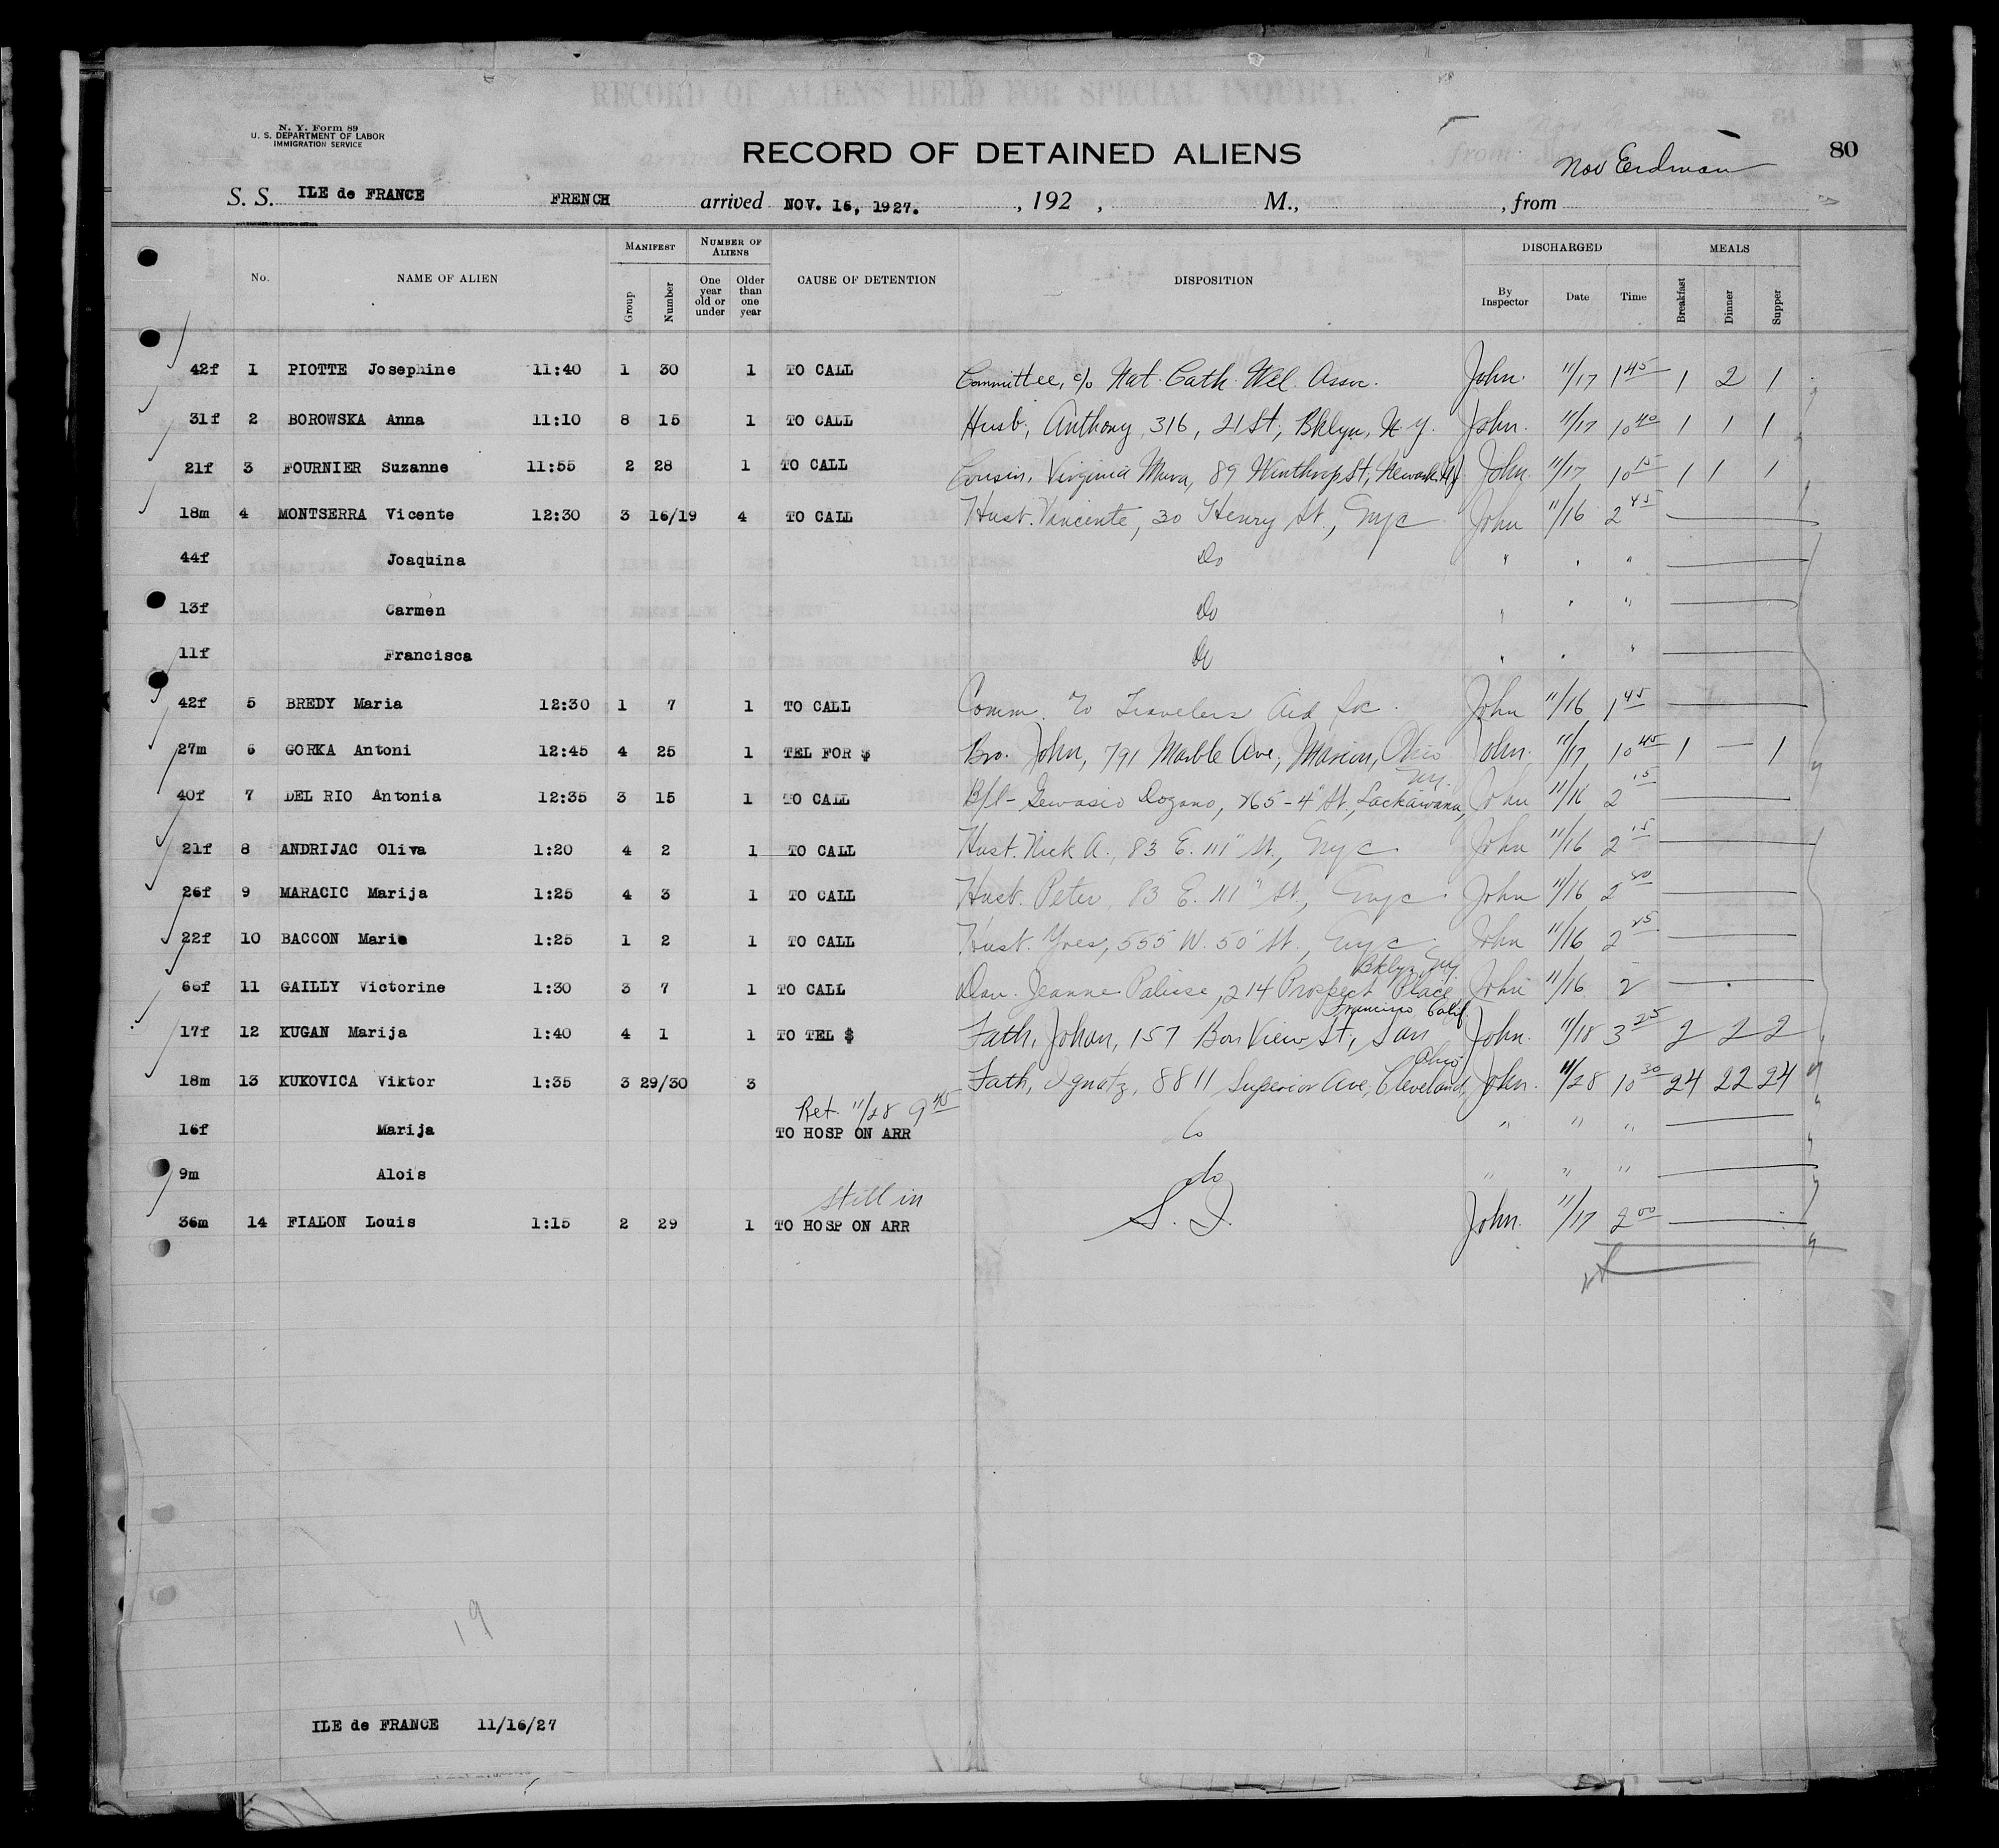 N. Y. Form 89
U. S. DEPARTMENT OF LABOR
IMMIGRATION SERVICE
RECORD OF DETAINED ALIENS
80
Nov Erdman
S. S. ILE de FRANCE FRENCH arrived NOV. 16, 1927. , 192 , M., , from
No. NAME OF ALIEN MANIFEST Group Number NUMBER OF ALIENS One year old or under Older than one year CAUSE OF DETENTION DISPOSITION DISCHARGED By Inspector Date Time MEALS Breakfast Dinner Supper
42f 1 PIOTTE Josephine 11:40 1 30 1 TO CALL Committee, c/o Nat. Cath. Wel. Assoc. John. 11/17 1 45 1 2 1
31f 2 BOROWSKA Anna 11:10 8 15 1 TO CALL Husb, Anthony, 316, 21 St, Bklyn, N.Y. John. 11/17 10 40 1 1 1
21f 3 FOURNIER Suzanne 11:55 2 28 1 TO CALL Cousin, Virginia 89 Winthrop St, Newark NJ John. 11/17 10 15 1 1 1
18m 4 MONTSERRA Vicente 12:30 3 16/19 4 TO CALL Husb. Vincente, 30 Henry St., nyc John 11/16 2 45
44f Joaquina Do " " "
13f Carmen Do " " "
11f Francisca Do " " "
42f 5 BREDY Maria 12:30 1 7 1 TO CALL Comm. Travelers Aid Soc. John 11/16 1 45
27m 6 GORKA Antoni 12:45 4 25 1 TEL FOR $ Bro. John, 791 Marble Ave, Marion, Ohio John. 11/17 10 45 1 — 1
40f 7 DEL RIO Antonia 12:35 3 15 1 TO CALL B/l - 4" St, Lackawana, ny. John 11/16 2 15
21f 8 ANDRIJAC Oliva 1:20 4 2 1 TO CALL Husb. Nick A., 83 E. 111" St, nyc John 11/16 2 15
26f 9 MARACIC Marija 1:25 4 3 1 TO CALL Husb. Peter, 83 E. 111" St., nyc John 11/16 2
22f 10 BACCON Marie 1:25 1 2 1 TO CALL Husb. Yves, 555 W. 50" St., nyc John 11/16 2
66f 11 GAILLY Victorine 1:30 3 7 1 TO CALL Dau. Jeanne 214 Prospect Place Bklyn ny John 11/16 2
17f 12 KUGAN Marija 1:40 4 1 1 TO TEL $ Fath, Johan, 157 Bon View St, San Francisco Calif. John. 11/18 3 25 2 2 2
18m 13 KUKOVICA Viktor 1:35 3 29/30 3 Fath, Ignatz, 8811 Superior Ave, Cleveland, Ohio John. 11/28 10 30 24 22 24
Ret. 11/28 9 45
16f Marija TO HOSP ON ARR " " "
9m Alois do " " "
Still in
36m 14 FIALON Louis 1:15 2 29 1 TO HOSP ON ARR S. I. John. 11/17 2 00
19
ILE de FRANCE 11/16/27